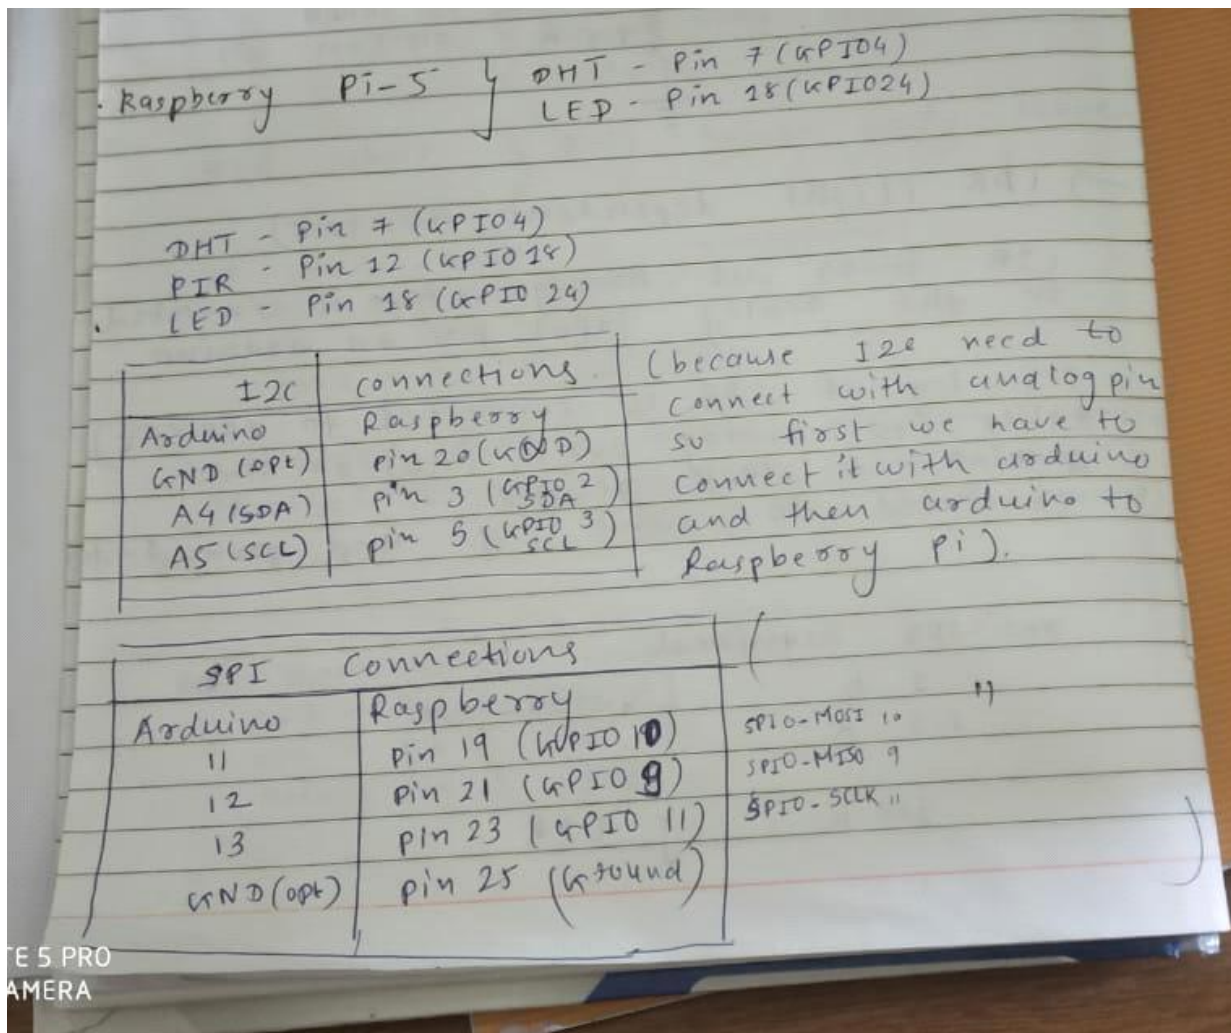 Raspberry Pi-5 { DHT - Pin 7 (GPIO4)
LED - Pin 18 (GPIO24)
DHT - Pin 7 (GPIO4)
PIR - Pin 12 (GPIO 18)
LED - Pin 18 (GPIO 24)
I2C connections.
Arduino Raspberry
GND (opt) pin 20 (GND)
A4 (SDA) pin 3 (GPIO 2 SDA)
A5 (SCL) pin 5 (GPIO 3 SCL)
(because I2C need to
connect with analog pin
so first we have to
connect it with arduino
and then arduino to
Raspberry Pi).
SPI Connections (
Arduino Raspberry
11 Pin 19 (GPIO 10) SPI0-MOSI 10 "
12 Pin 21 (GPIO 9) SPI0-MISO 9
13 Pin 23 (GPIO 11) SPI0-SCLK 11
GND (opt) pin 25 (Ground) )
TE 5 PRO
AMERA